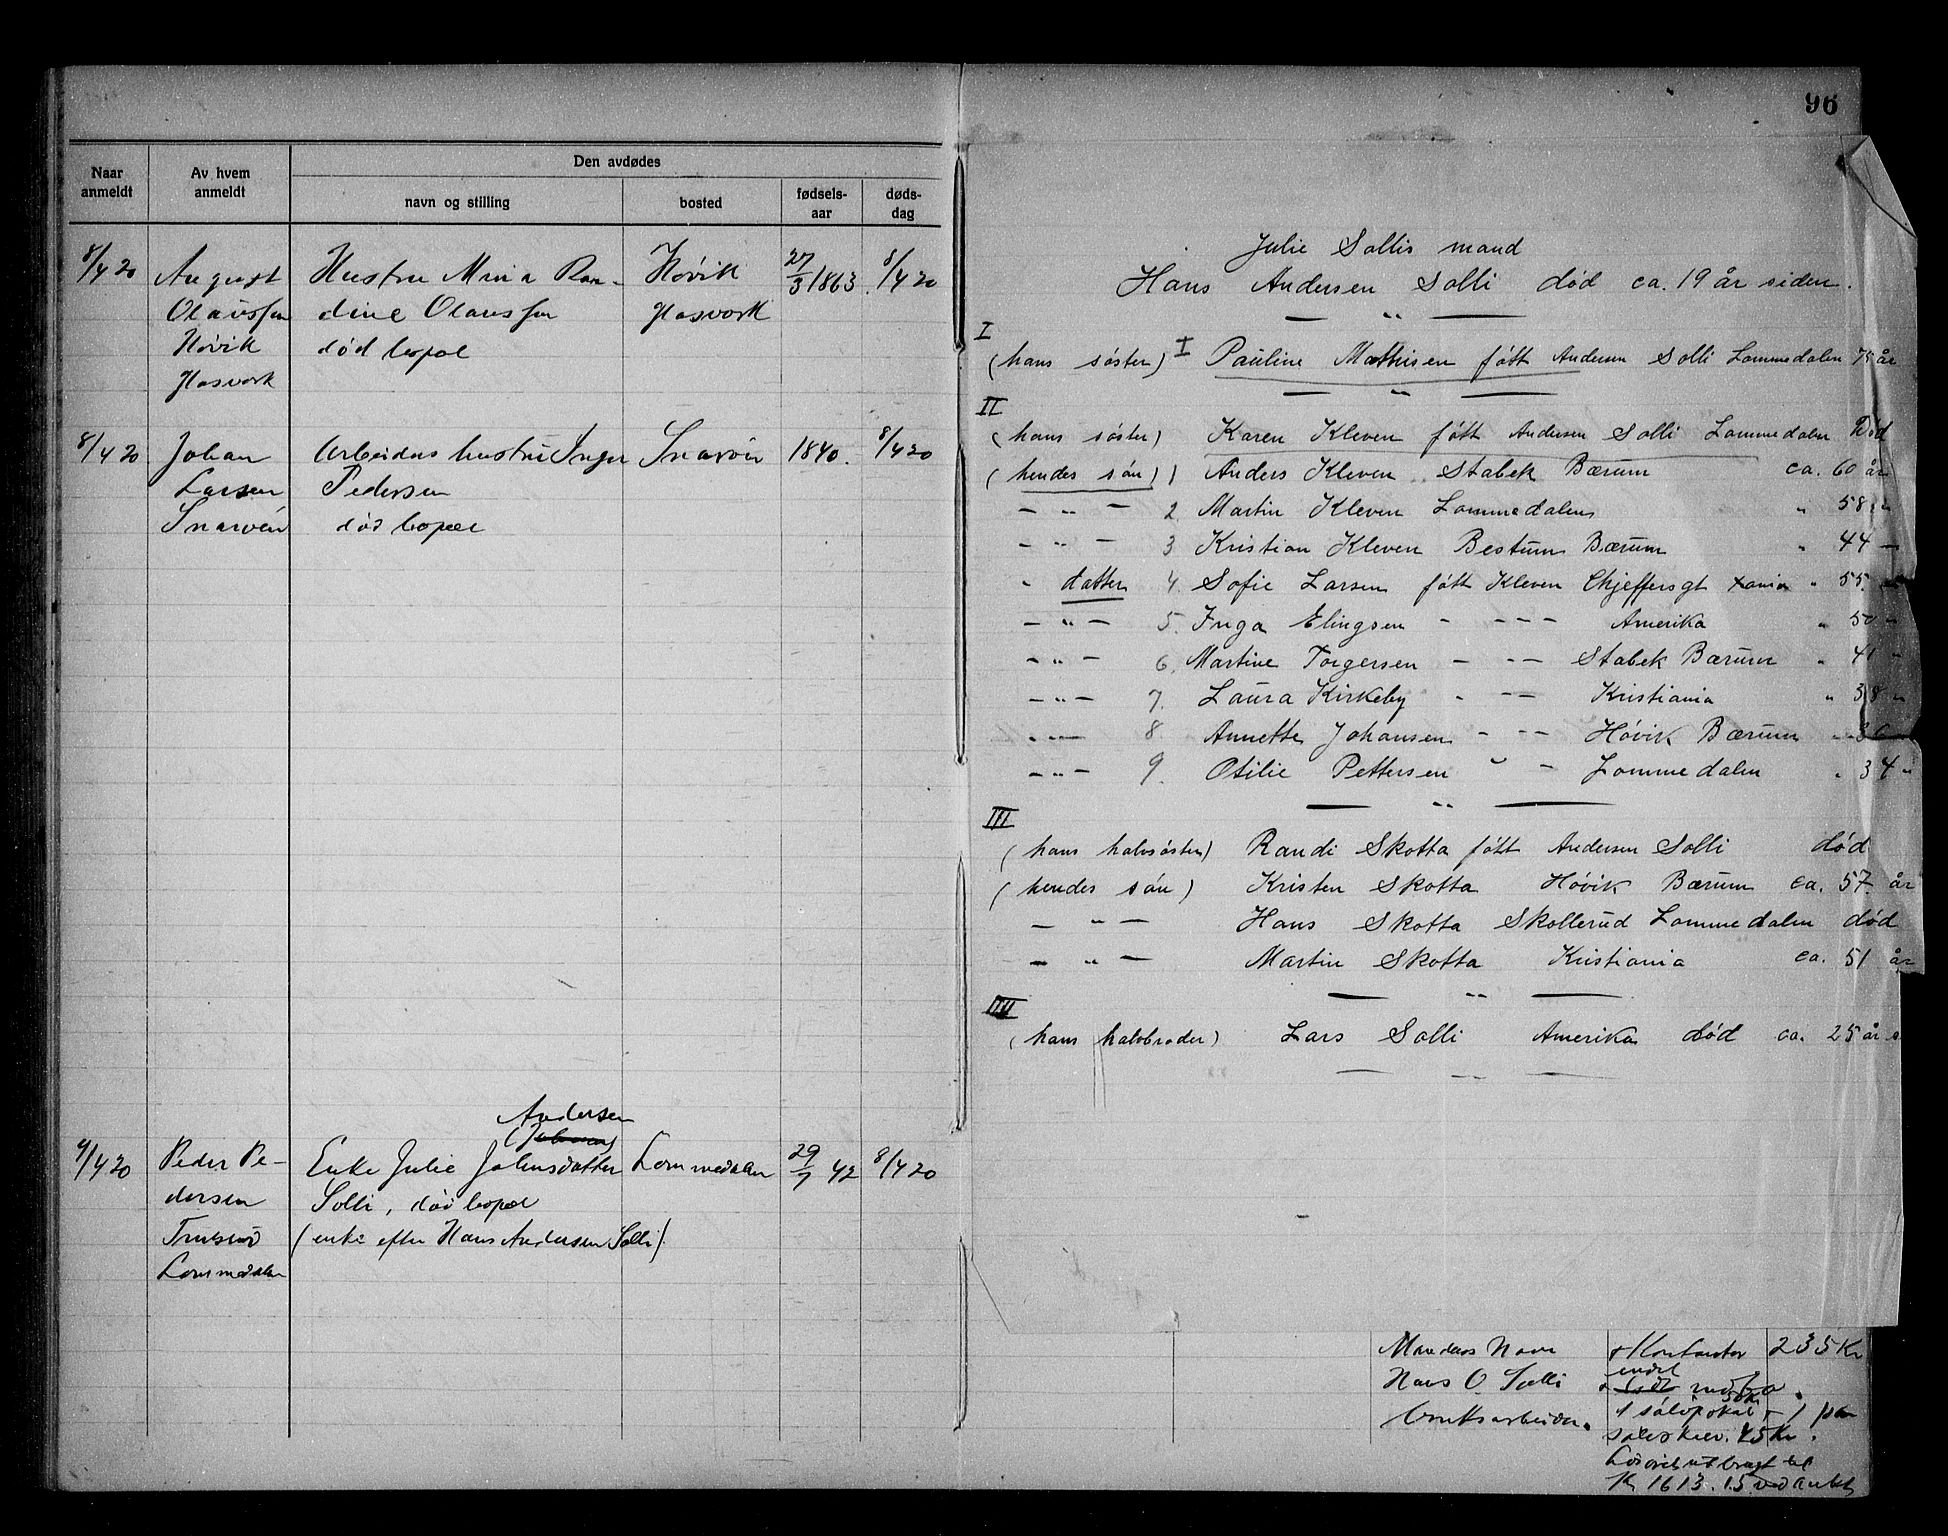 96
Naar anmeldt
Av hvem anmeldt
Den avdødes
navn og stilling
bosted
fødsels-aar
døds-dag
8/4 20
August
Olaussen
Høvik
Glasverk
Hustru Mina Ran-
dine Olaussen
død bopæl
Høvik
Glasverk
27/3 1863
8/4 20
8/4 20
Johan
Larsen
Snarøen
Arbeiders hustru Inger
Pedersen
død bopæl
Snarøen
1840.
8/4 20
9/4 20
Peder Pe-
dersen
Lommedalen
Andersen
Enke Julie Johnsdatter
Solli, død bopæl
(enke efter Hans Andersen Solli)
Lommedalen
29/7 42
8/4 20
Julie Sollis mand
Hans Andersen Solli død ca. 19 år siden.
I
(hans søster) I Pauline Mathisen født Andersen Solli Lommedalen 75 år
II
(hans søster) Karen Kleven født Andersen Solli Lommedalen Død
(hendes søn) 1 Anders Kleven Stabek Bærum ca. 60 år
— " — 2. Martin Kleven Lommedalen " 58 "
— " — 3 Kristian Kleven Bestum Bærum " 44 —
" datter 4. Sofie Larsen født Kleven Xania " 55. —
— " — 5. Inga Elingsen - - - - Amerika " 50 "
— " — 6. Martine Torgersen - - - Stabek Bærum " 41 "
— " — 7. Laura Kirkeby - - - Kristiania " 38 "
— " — 8 Annette Johansen - - - Høvik Bærum
— " — 9. Otilie Pettersen " - Lommedalen " 34 "
III
(hans halvsøster) Randi Skotta født Andersen Solli død
(hendes søn) Kristen Skotta Høvik Bærum ca. 57 år
— " — Hans Skotta Skollerud Lommedalen død
— " — Martin Skotta Kristiania ca. 51 år
IIII
(hans halvbroder) Lars Solli Amerika død ca. 25 år s
Mandens Navn
Hans O. Solli
Bruksarbeider.
+ Kontanter 235 Kr
1 sølvpokal + 1 par
45 Kr.
Løsøre utbragt til
Kr 1613.15 ved aukt